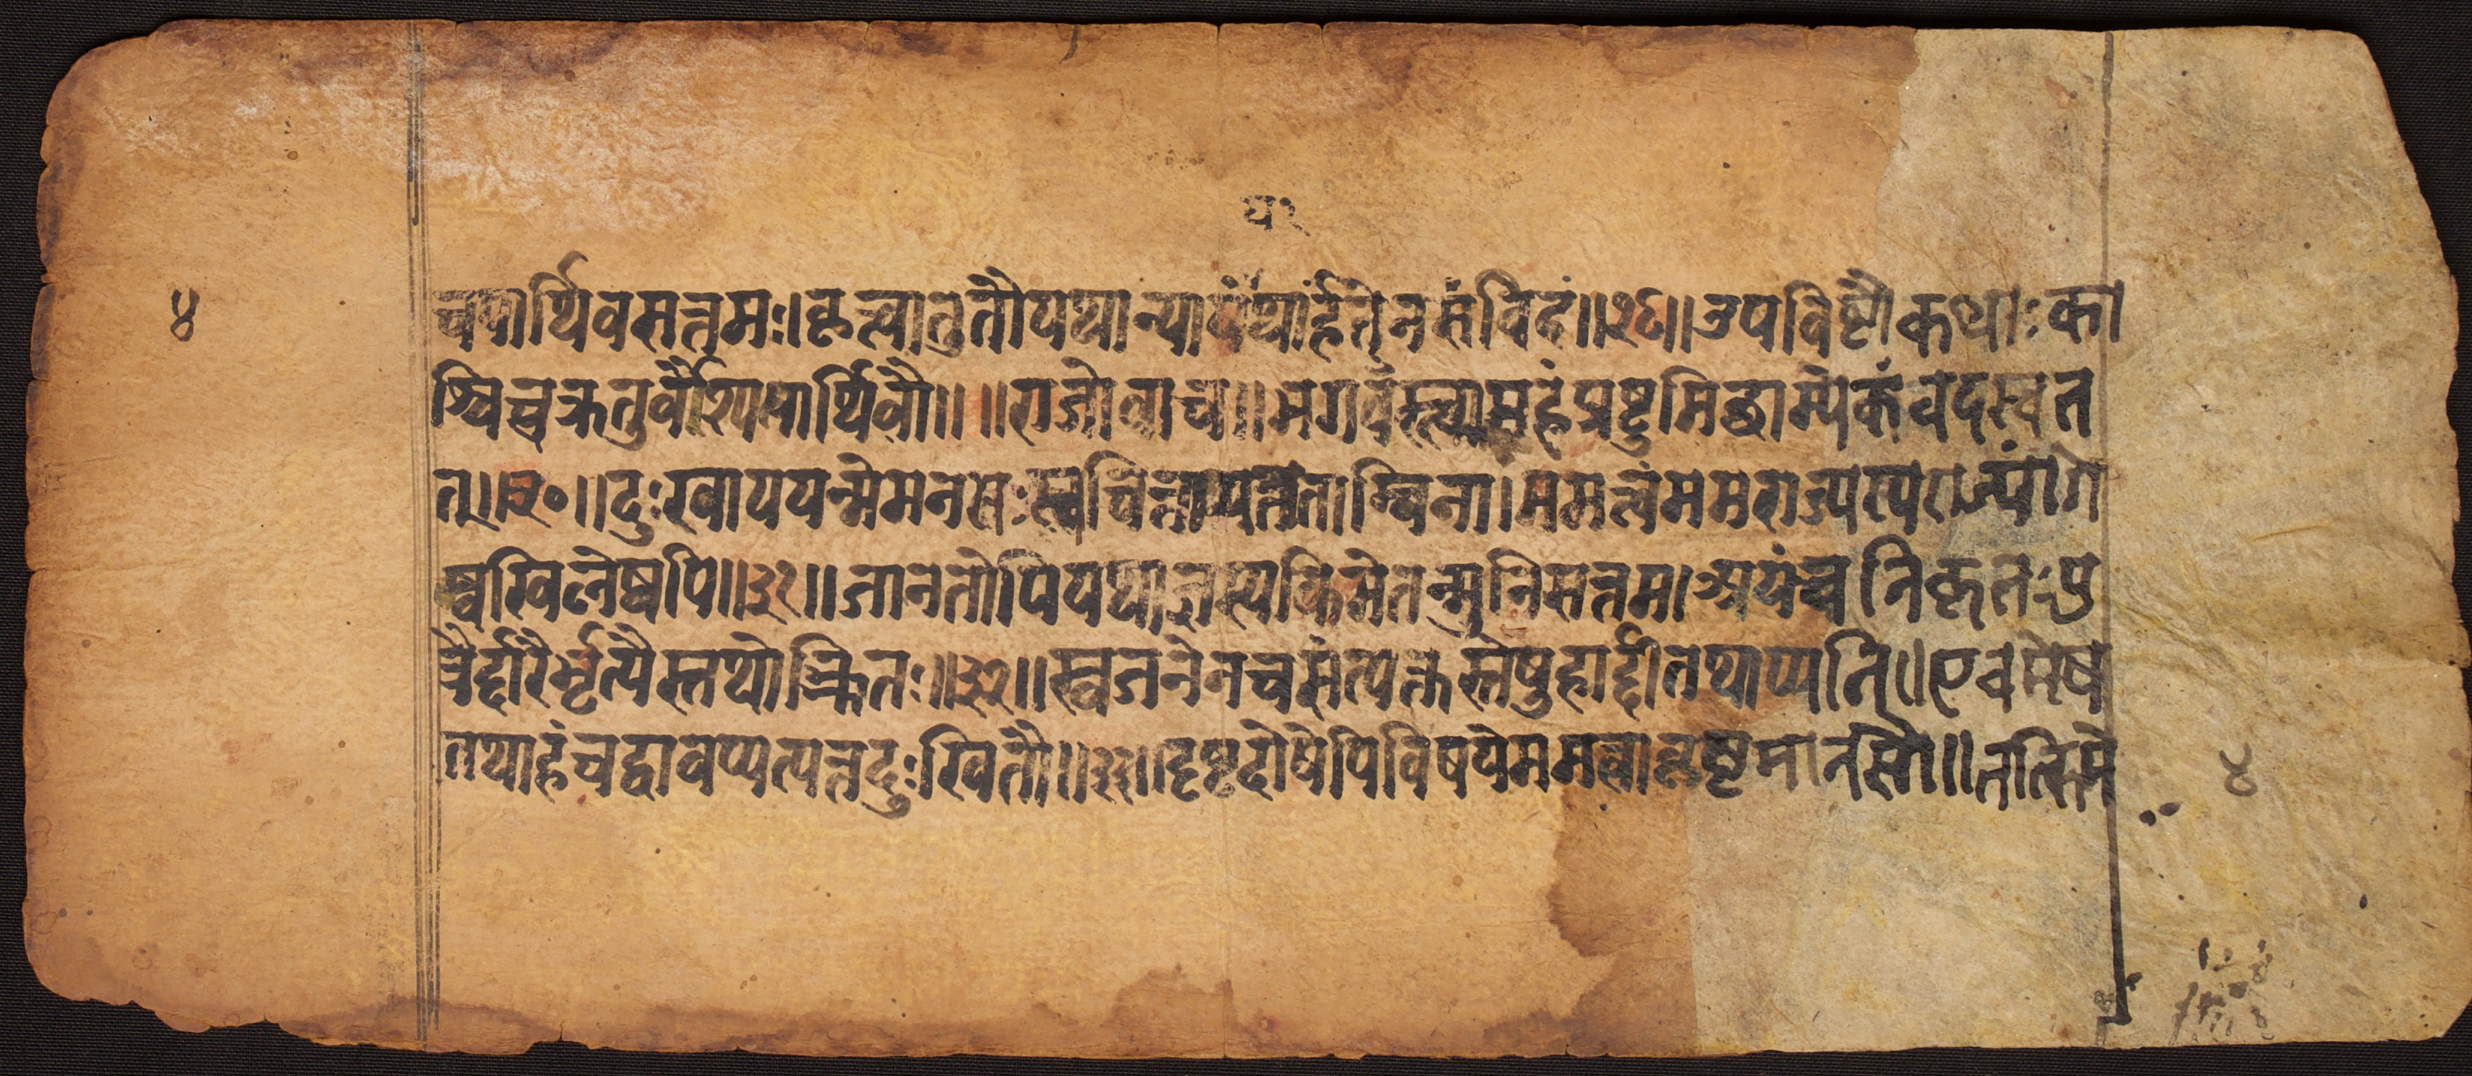 य १
४
चपार्थिवसत्तमः।कृत्वातुतौयथान्यायंयथार्हंतेनसंविदं॥२९॥उपविष्टौकथाःका
श्चिच्चक्रतुर्वैश्यपार्थिवौ॥ ॥राजोवाच॥भगवंस्त्वामहंप्रष्टुमिछाम्येकंवदस्वत
त्॥३०॥दुःखाययन्मेमनसःस्वचित्तायत्ततांविना।ममत्वंममराज्यस्यराज्यांगे
ष्वखिलेष्वपि॥३१॥जानतोपियथाज्ञस्यकिमेतन्मुनिसत्तम।अयंचनिकृतःपु
त्रैर्द्दारैर्भृत्यैस्तथोज्झितः॥३२॥स्वजनेनचसंत्यक्तस्तेषुहार्द्दीतथाप्यति॥एवमेष
तथाहंचद्वावप्यत्यन्तदुःखितौ॥३३॥दृष्टदोषेपिविषयेममत्वाकृष्टमानसौ॥तत्किमे
४